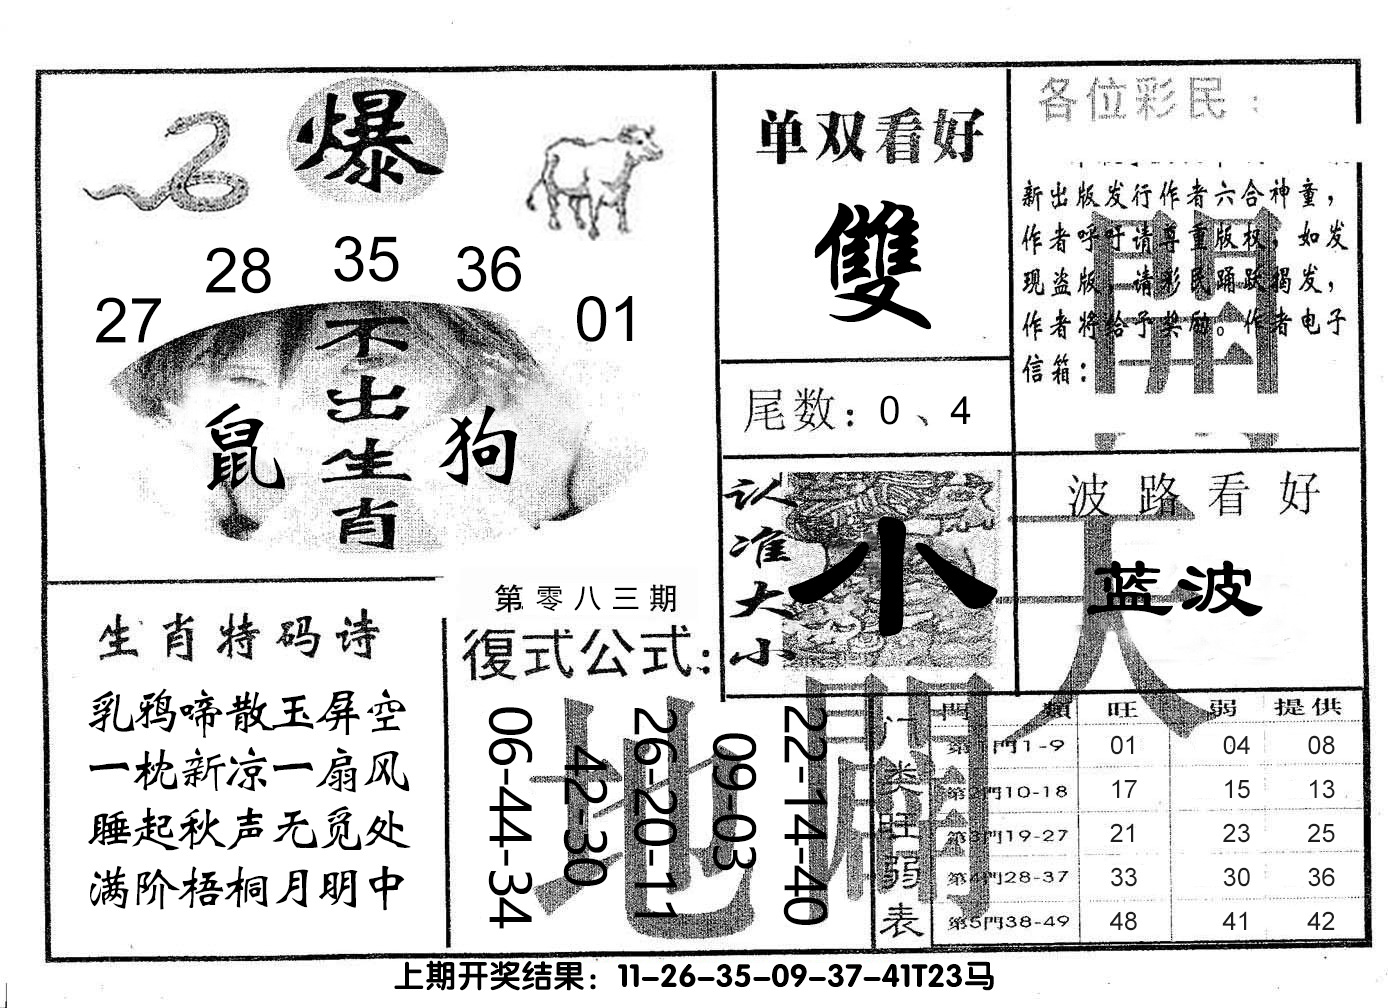 爆
27
28
35
36
01
不出生肖
鼠
狗
单双看好
雙
尾数：0、4
各位彩民：
新出版发行作者六合神童，
作者呼吁请尊重版权，如发
现盗版，请彩民踊跃揭发，
作者将给予奖励。作者电子
信箱：
開
认准大小
小
波路看好
蓝波
天
生肖特码诗
乳鸦啼散玉屏空
一枕新凉一扇风
睡起秋声无觅处
满阶梧桐月明中
第零八三期
復式公式：
06-44-34
42-30
26-20-11
09-03
22-14-40
地
開
门类旺弱表
門 類 旺 弱 提供
第1門1-9 01 04 08
第2門10-18 17 15 13
第3門19-27 21 23 25
第4門28-37 33 30 36
第5門38-49 48 41 42
上期开奖结果：11-26-35-09-37-41T23马